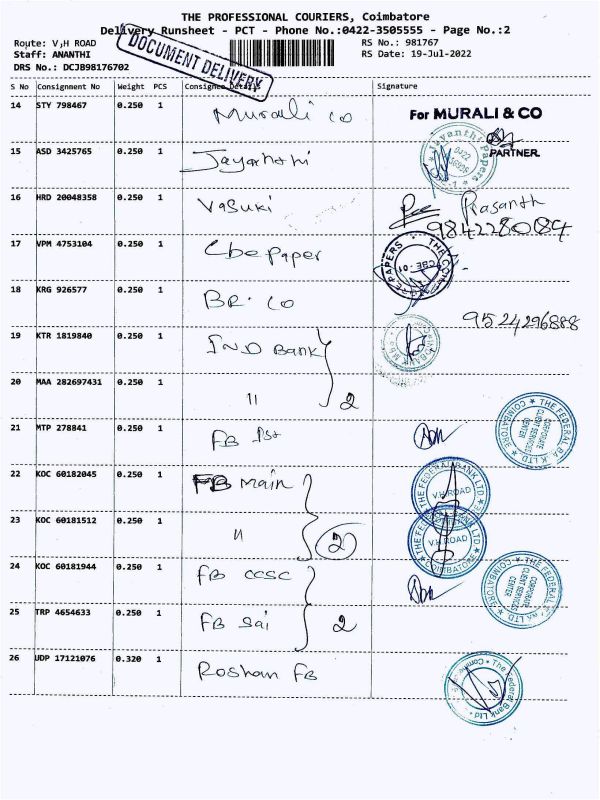 THE PROFESSIONAL COURIERS, Coimbatore
Delivery Runsheet - PCT - Phone No.:0422-3505555 - Page No.:2
Route: V,H ROAD
RS No.: 981767
Staff: ANANTHI
RS Date: 19-Jul-2022
DRS No.: DCJB98176702
DOCUMENT DELIVERY
S No Consignment No Weight PCS Consignee Details Signature
14 STY 798467 0.250 1 Murali co For MURALI & CO
PARTNER
15 ASD 3425765 0.250 1 Jayanthi Jayanthi Papers
16 HRD 20048358 0.250 1 Vasuki Prasanth
9842280084
17 VPM 4753104 0.250 1 Cbe Paper CBE - 01
18 KRG 926577 0.250 1 BR. CO
9524296888
19 KTR 1819840 0.250 1 IND Bank
20 MAA 282697431 0.250 1 " 2
21 MTP 278841 0.250 1 FB THE FEDERAL BANK LTD COIMBATORE CORPORATE CLIENT SERVICES CENTER
22 KOC 60182045 0.250 1 FB main THE FEDERAL BANK LTD V.H ROAD
23 KOC 60181512 0.250 1 " 2 THE FEDERAL BANK LTD V.H ROAD COIMBATORE
24 KOC 60181944 0.250 1 FB CCSC THE FEDERAL BANK LTD COIMBATORE CORPORATE CLIENT SERVICES CENTER
25 TRP 4654633 0.250 1 FB Sai 2
26 UDP 17121076 0.320 1 Roshan FB The Federal Bank Ltd